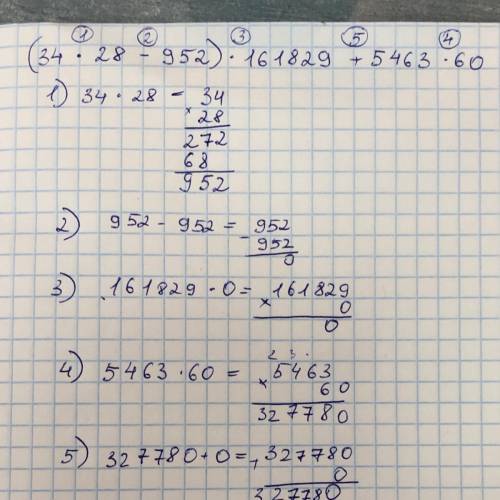 ① ② ③ ⑤ ④
(34 · 28 - 952) · 161829 + 5463 · 60
1) 34 · 28 = 34
× 28
272
68
952
2) 952 - 952 = 952
- 952
0
3) 161829 · 0 = 161829
× 0
0
2 3 ·
4) 5463 · 60 = 5463
× 60
327780
5) 327780 + 0 = + 327780
0
327780